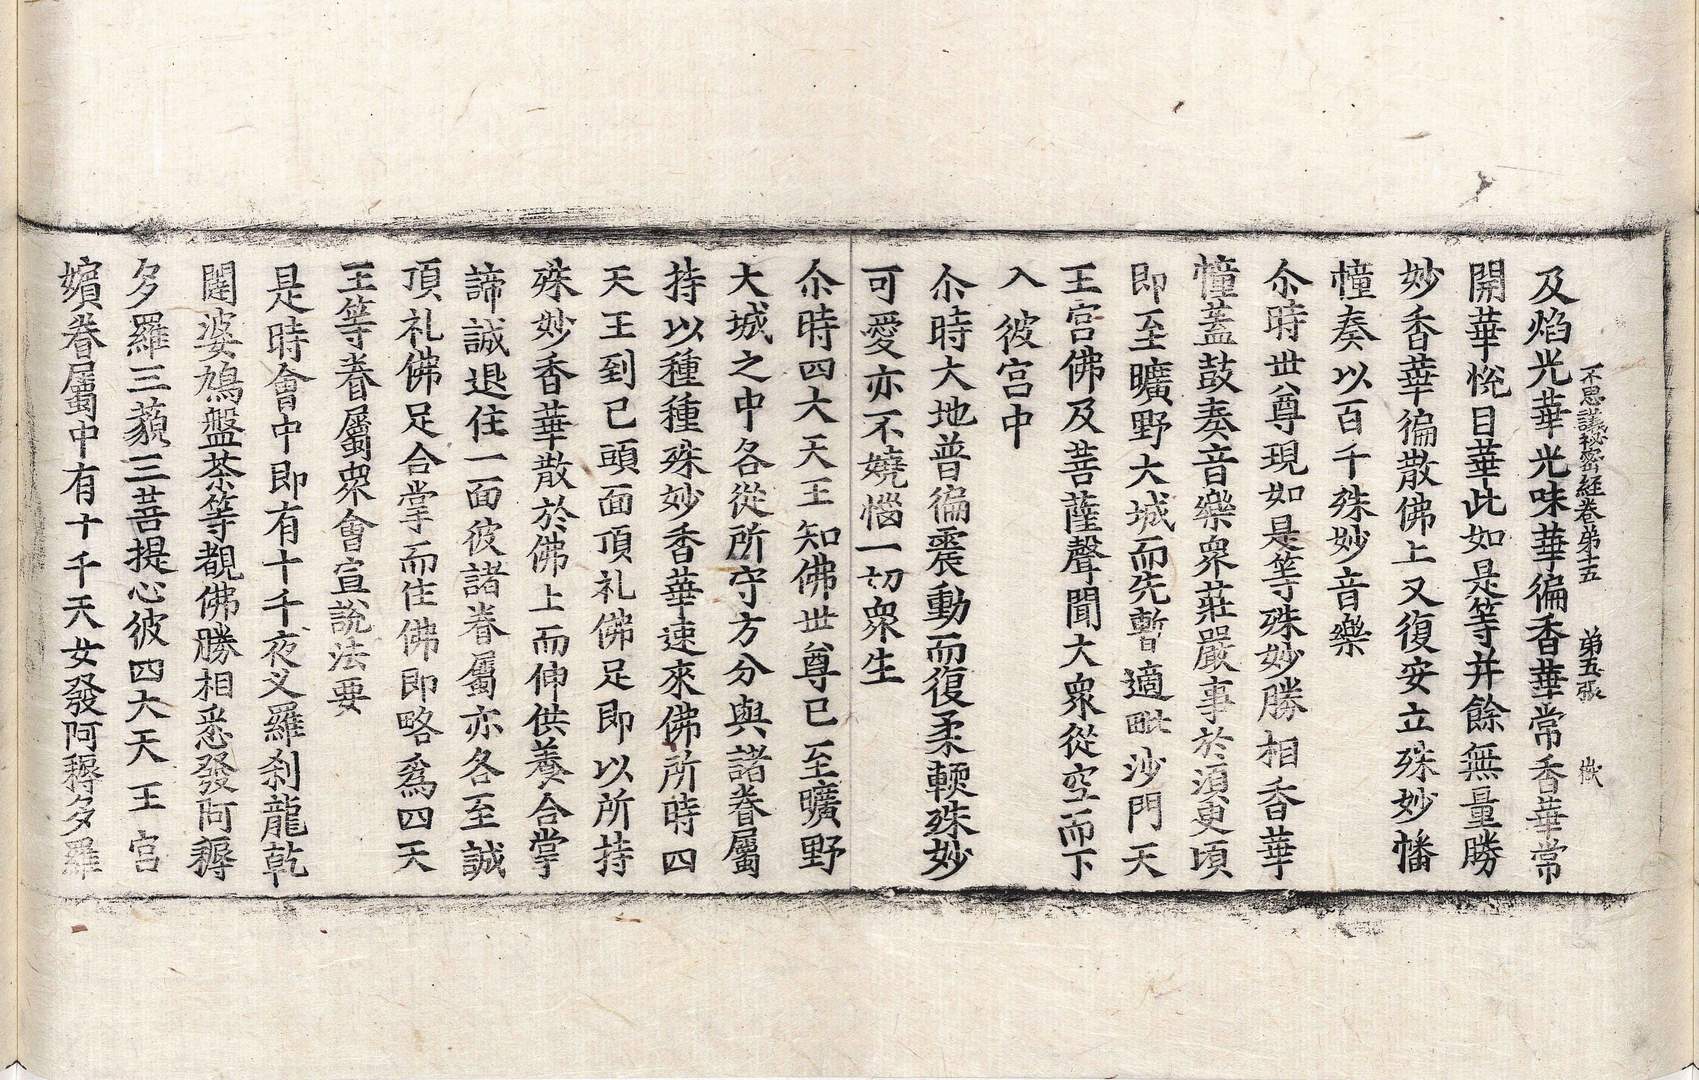 不思議祕密經卷第十五 第五張 㪺
及焰光華光味華徧香華常香華常
開華悅目華此如是等并餘無量勝
妙香華徧散佛上又復安立殊妙幡
幢奏以百千殊妙音樂
尒時世尊現如是等殊妙勝相香華
幢蓋鼓奏音樂衆莊嚴事於須臾頃
即至曠野大城而先暫適毗沙門天
王宮佛及菩薩聲聞大衆從空而下
入彼宮中
尒時大地普徧震動而復柔輭殊妙
可愛亦不嬈惱一切衆生
尒時四大天王知佛世尊已至曠野
大城之中各從所守方分與諸眷屬
持以種種殊妙香華速來佛所時四
天王到已頭面頂礼佛足即以所持
殊妙香華散於佛上而伸供養合掌
諦誠退住一面彼諸眷屬亦各至誠
頂礼佛足合掌而住佛即略爲四天
王等眷屬衆會宣說法要
是時會中即有十千夜叉羅刹龍乾
闥婆鳩盤茶等覩佛勝相悉發阿耨
多羅三藐三菩提心彼四大天王宮
嬪眷屬中有十千天女發阿耨多羅